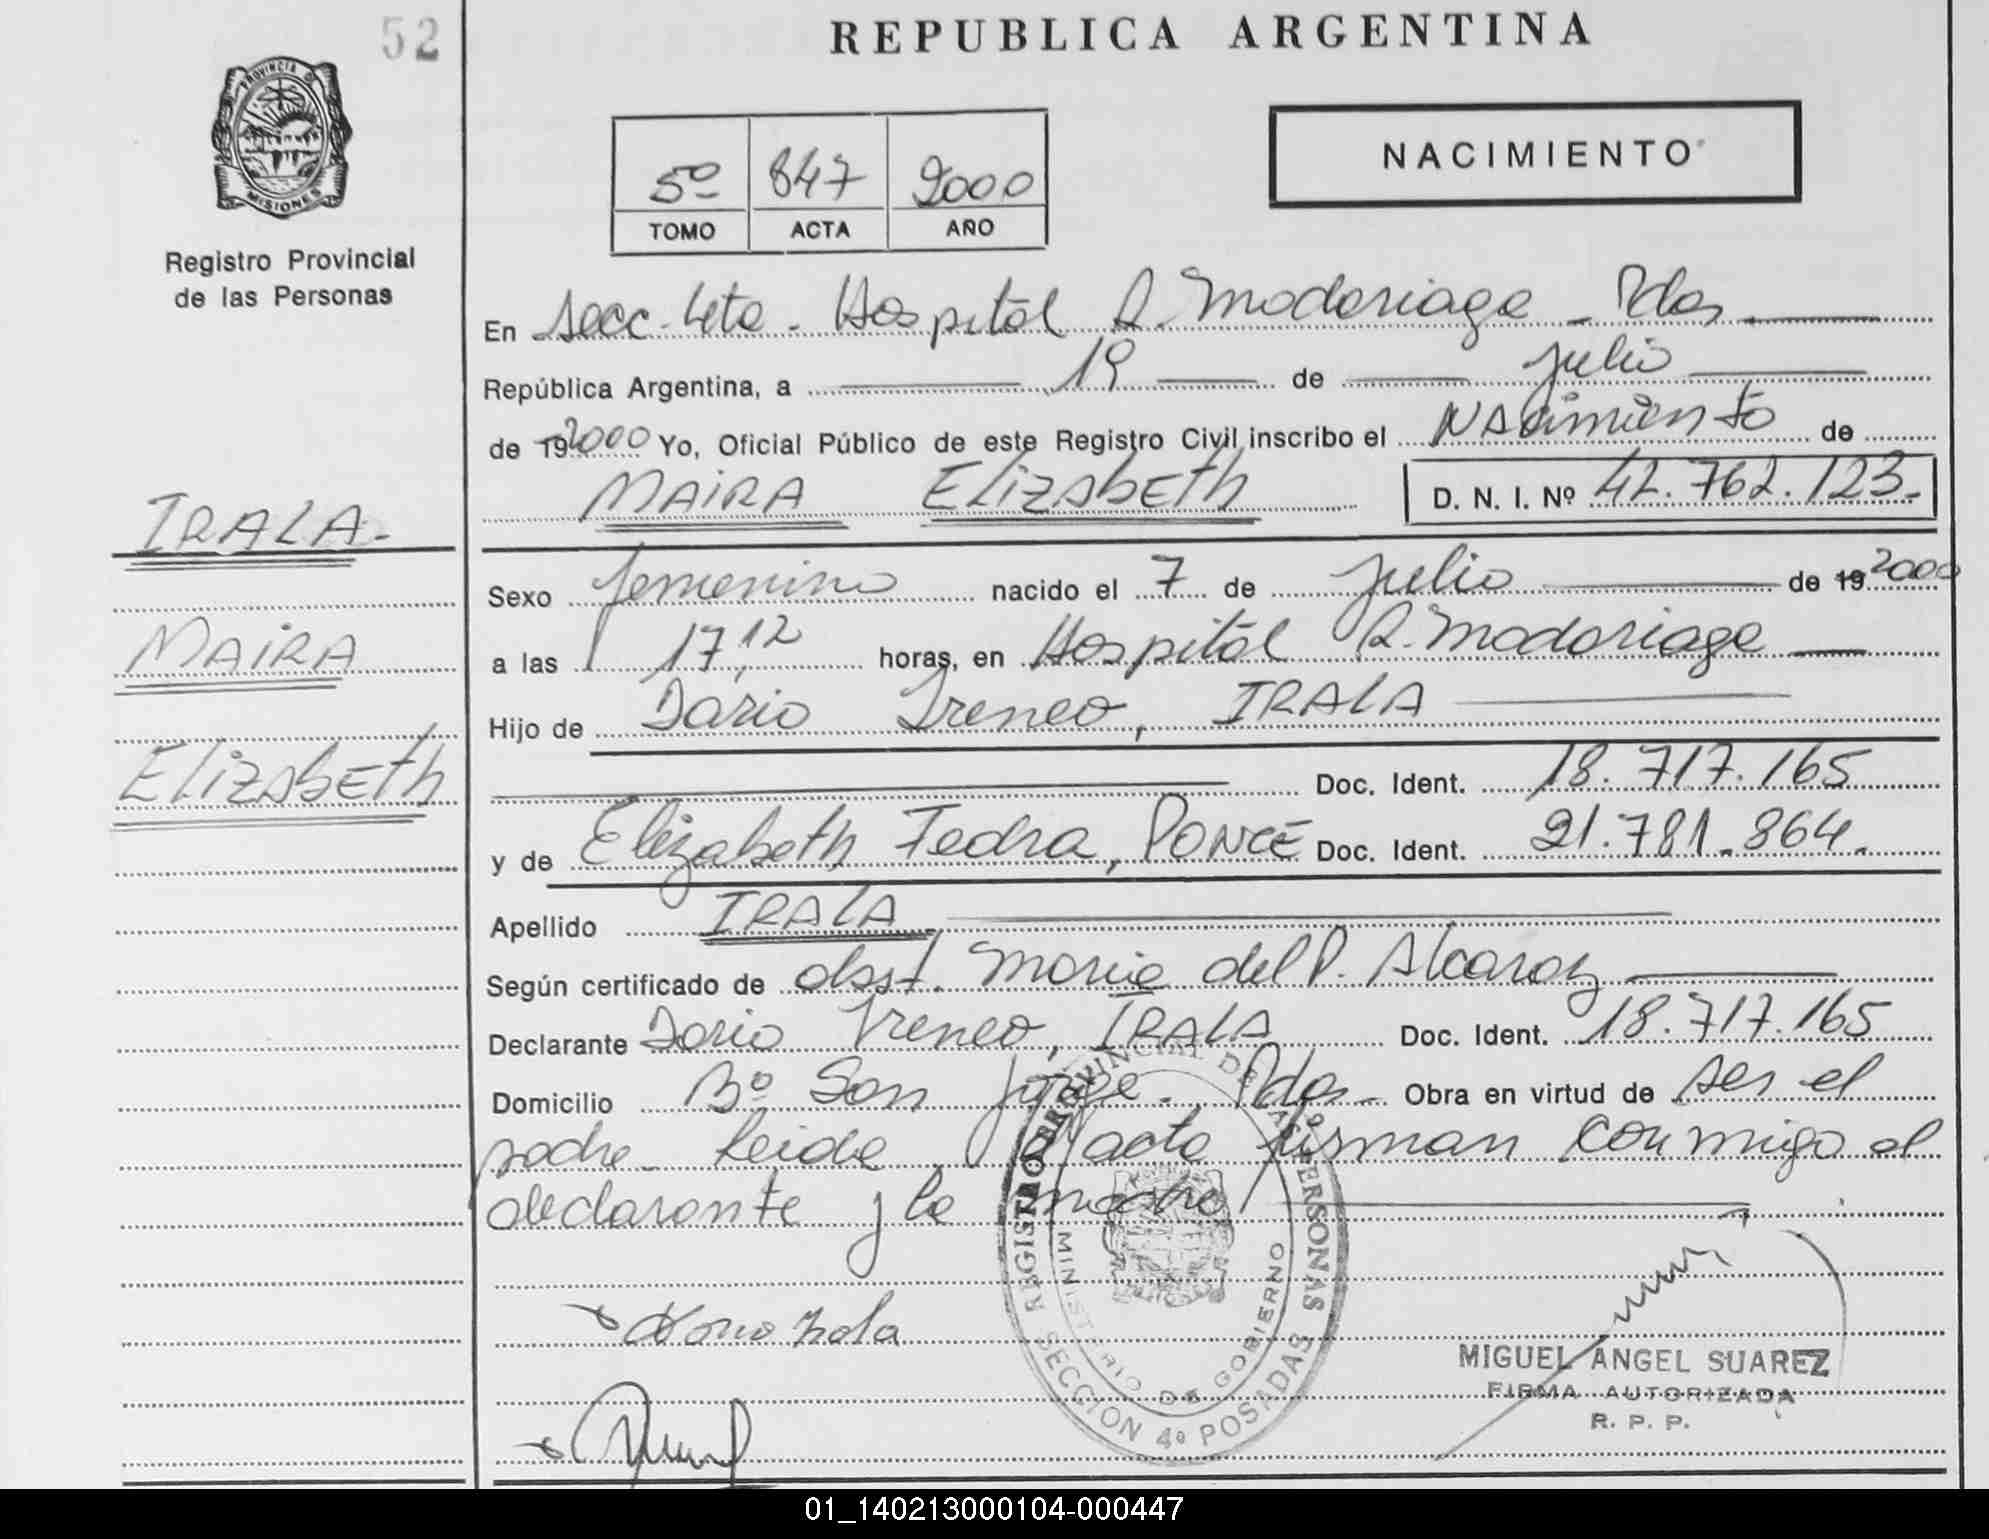 52
REPUBLICA ARGENTINA
PROVINCIA DE
MISIONES
Registro Provincial
de las Personas
5º 847 2000
TOMO ACTA AÑO
NACIMIENTO
En secc. 4ta. Hospital R. Madariaga - Pdas
República Argentina, a 19 de julio
de 19 2000 Yo, Oficial Público de este Registro Civil inscribo el NAcimiento de
MAiRA ElizAbEth D. N. I. Nº 42.762.123.
IRALA.
MAiRA
ElizAbEth
Sexo femenino nacido el 7 de julio de 19 2000
a las 17,12 horas, en Hospital R. Madariaga
Hijo de Dario Ireneo, IRALA
Doc. Ident. 18.717.165
y de Elizabeth Fedra, PONCE Doc. Ident. 21.781.864.
Apellido IRALA
Según certificado de obst. Maria del P. Alcaraz
Declarante Dario Ireneo, IRALA Doc. Ident. 18.717.165
Domicilio Bº San Jorge. Pdas. Obra en virtud de ser el
padre. Leida el acta firman conmigo el
declarante y la madre
REGISTRO PROVINCIAL DE LAS PERSONAS
MINISTERIO DE GOBIERNO
SECCION 4º POSADAS
MIGUEL ANGEL SUAREZ
FIRMA AUTORIZADA
R. P. P.
01_140213000104-000447